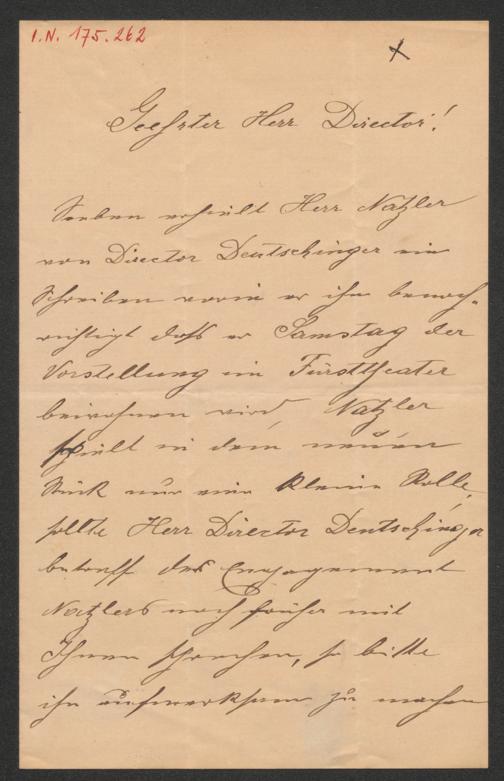 I.N. 175.262
Geehrter Herr Director!
Soeben erhielt Herr Natzler
von Director Deutschinger ein
Schreiben worin er ihn benach-
richtigt daß er Samstag der
Vorstellung im Fürsttheater
beiwohnen wird. Natzler
spielt in dem neuen
Stück nur eine kleine Rolle,
sollte Herr Director Deutschinger
betreff des Engagement
Natzlers noch früher mit
Ihnen sprechen, so bitte
ihn aufmerksam zu machen